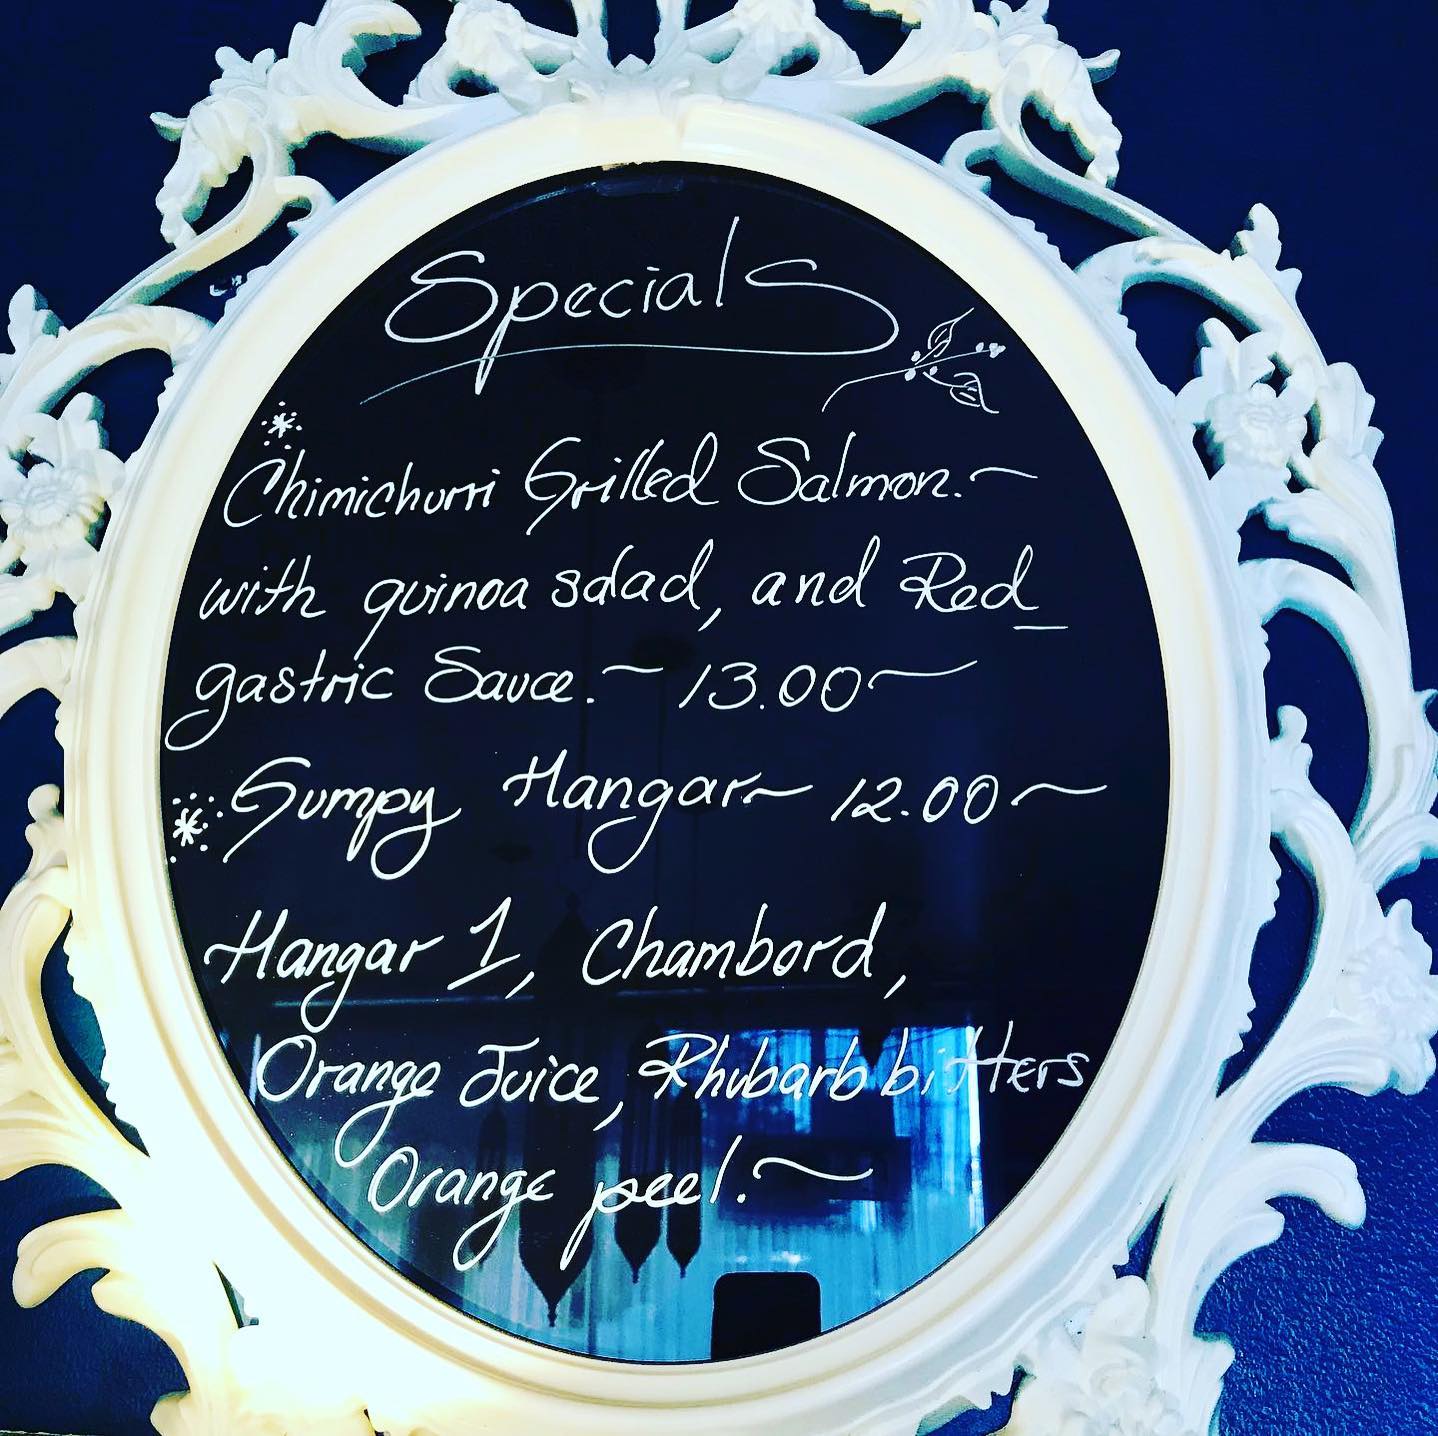 Specials
Chimichurri Grilled Salmon.~
with quinoa salad, and Red_
gastric Sauce.~ 13.00~
Gumpy Hangar~ 12.00~
Hangar 1, Chambord,
Orange Juice, Rhubarb bitters
Orange peel.~